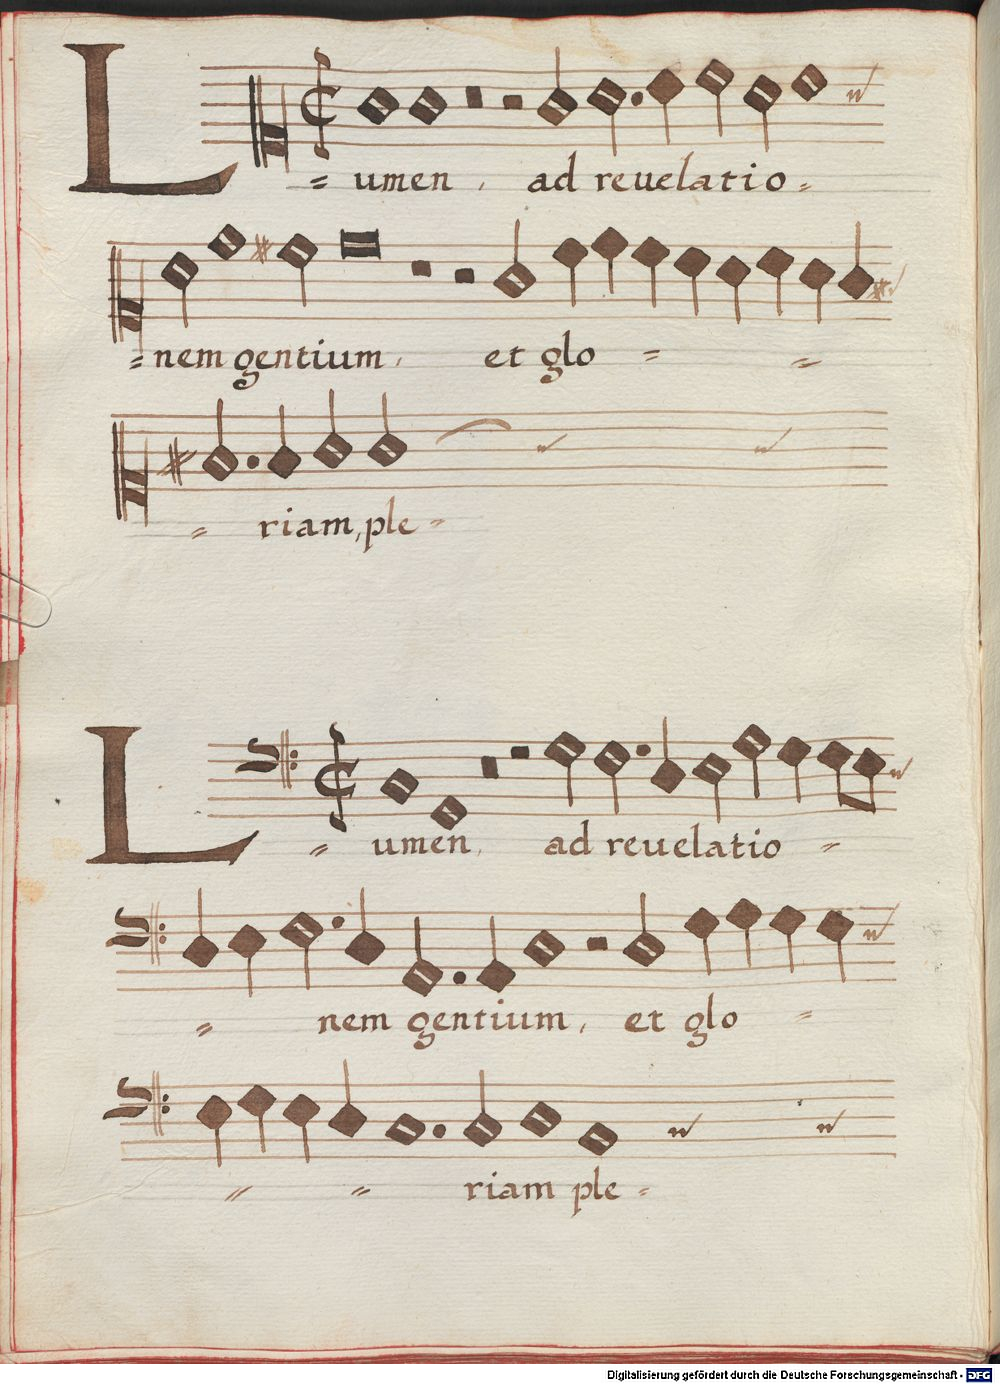 L = umen , ad reuelatio =
= nem gentium , et glo = =
= riam, ple =
L = umen , ad reuelatio =
= nem gentium , et glo =
= = riam ple =
Digitalisierung gefördert durch die Deutsche Forschungsgemeinschaft - DFG